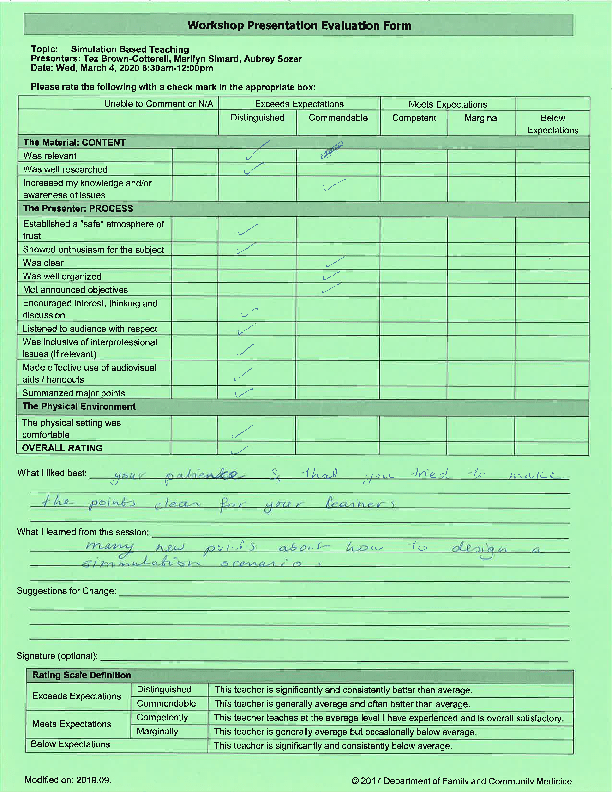 Workshop Presentation Evaluation Form
Topic: Simulation Based Teaching
Presenters: Tez Brown-Cotterell, Marilyn Simard, Aubrey Sozer
Date: Wed, March 4, 2020 8:30am-12:00pm
Please rate the following with a check mark in the appropriate box:
Unable to Comment or N/A Exceeds Expectations Meets Expectations
Distinguished Commendable Competent Marginal Below Expectations
The Material: CONTENT
Was relevant
Was well researched
Increased my knowledge and/or
awareness of issues
The Presenter: PROCESS
Established a "safe" atmosphere of
trust
Showed enthusiasm for the subject
Was clear
Was well organized
Met announced objectives
Encouraged interest, thinking and
discussion
Listened to audience with respect
Was inclusive of interprofessional
issues (if relevant)
Made effective use of audiovisual
aids / handouts
Summarized major points
The Physical Environment
The physical setting was
comfortable
OVERALL RATING
What I liked best: your patience & that you tried to make
the points clear for your learners
What I learned from this session:
many new points about how to design a
simmulation scenario.
Suggestions for Change:
Signature (optional):
Rating Scale Definition
Exceeds Expectations Distinguished This teacher is significantly and consistently better than average.
Commendable This teacher is generally average and often better than average.
Meets Expectations Competently This teacher teaches at the average level I have experienced and is overall satisfactory.
Marginally This teacher is generally average but occasionally below average.
Below Expectations This teacher is significantly and consistently below average.
Modified on: 2019.09. © 2017 Department of Family and Community Medicine